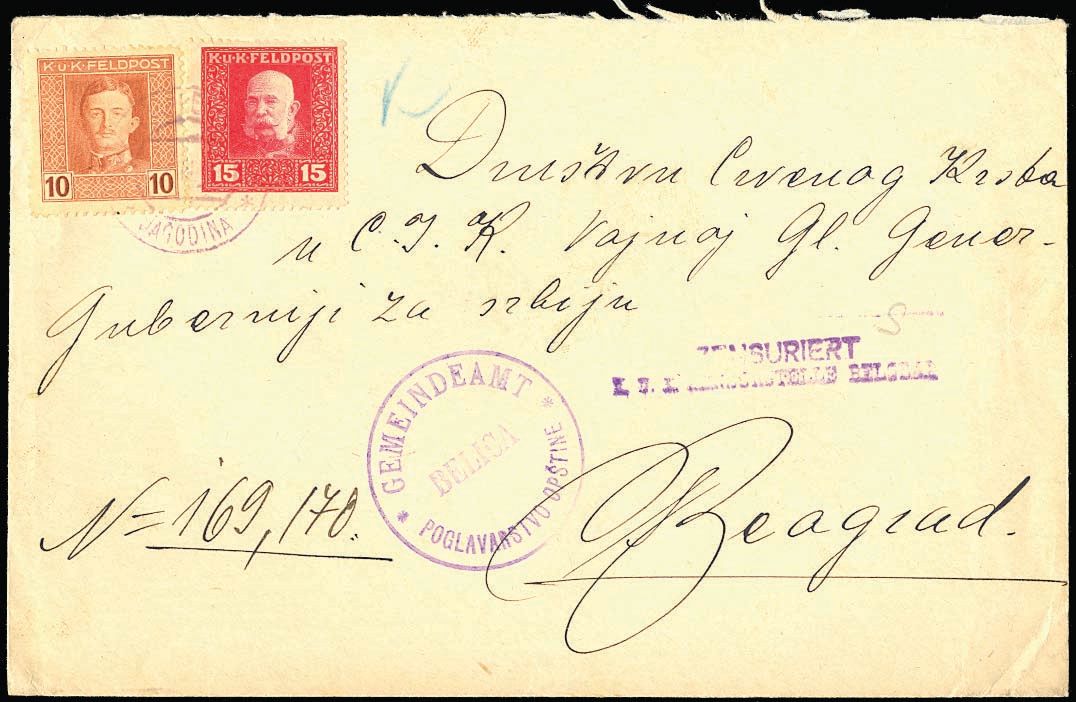 K.u.K.FELDPOST
10 10
K.u.K.FELDPOST
15 15
JAGODINA *
Društvu Crvenog Krsta
u C. I. K. Vojnoj Gl. Gener-
Guberniji za srbiju
S
ZENSURIERT
GEMEINDEAMT
BELICA
* POGLAVARSTVO OPŠTINE *
N=169,170.
Beograd.